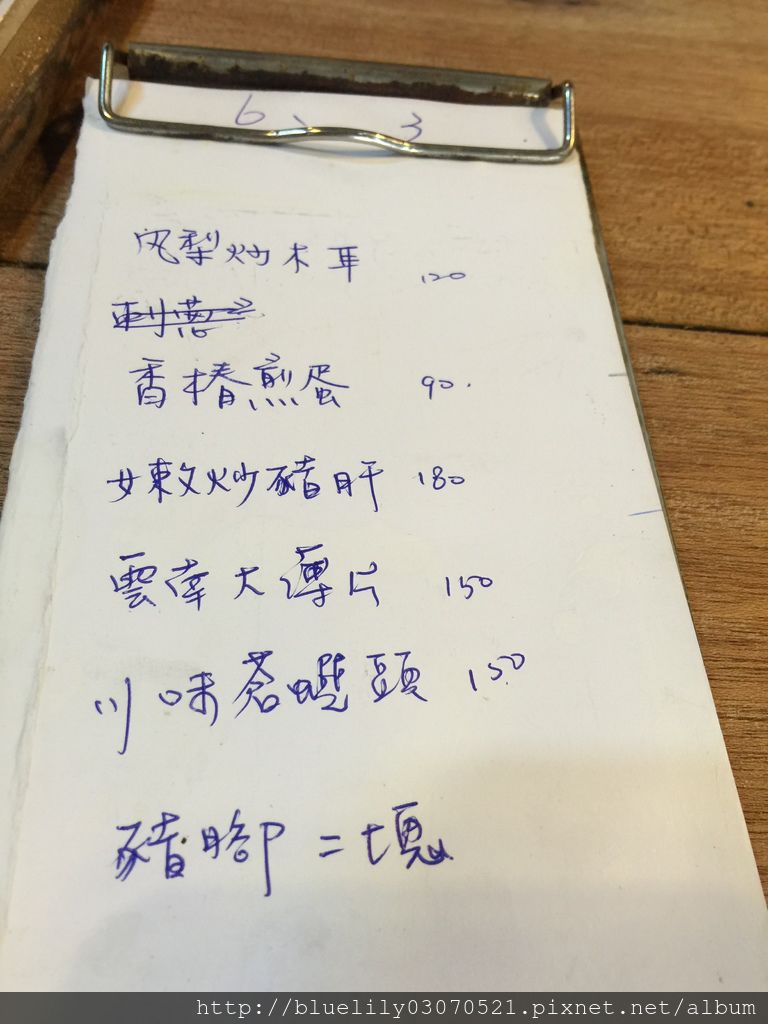 6、 3
凤梨炒木耳 120
刺蔥
香椿煎蛋 90.
女敕炒豬肝 180
雲南大薄片 150
川味蒼蠅頭 150
豬腳二塊
http://bluelily03070521.pixnet.net/album